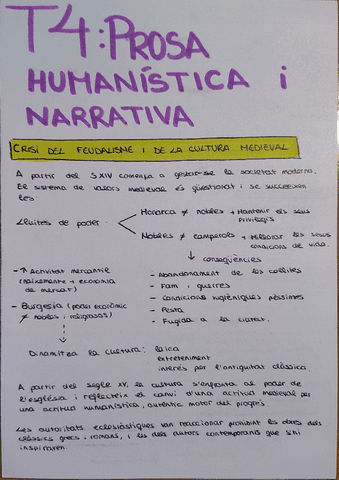 T4: PROSA
HUMANÍSTICA i
NARRATIVA
CRISI DEL FEUDALISME I DE LA CULTURA MEDIEVAL
A partir del SXIV comença a gestar-se la societat moderna.
El sistema de valors medieval és qüestionat i se succeeixen
les:
Lluites de poder
Monarca ≠ nobles → Mantenir els seus
privilegis
Nobles ≠ camperols → Millorar les seues
condicions de vida.
↓ conseqüències
- ↑ Activitat mercantil
(naixement → economia
de mercat)
- Burgesia (poder econòmic
≠ nobles i religiosos)
- Abandonament de les collites
- Fam i guerres
- Condicions higièniques pèssimes
- Pesta
- Fugida a la ciutat.
Dinamitza la cultura: laica
entreteniment
interés per l'antiguitat clàssica.
A partir del segle XV, la cultura s'enfronta al poder de
l'església i reflecteix el canvi d'una actitud medieval per
una actitud humanística, autèntic motor del progrés.
Les autoritats eclesiàstiques van reaccionar prohibint les obres dels
clàssics grecs i romans, i les dels autors contemporanis que s'hi
inspiraren.